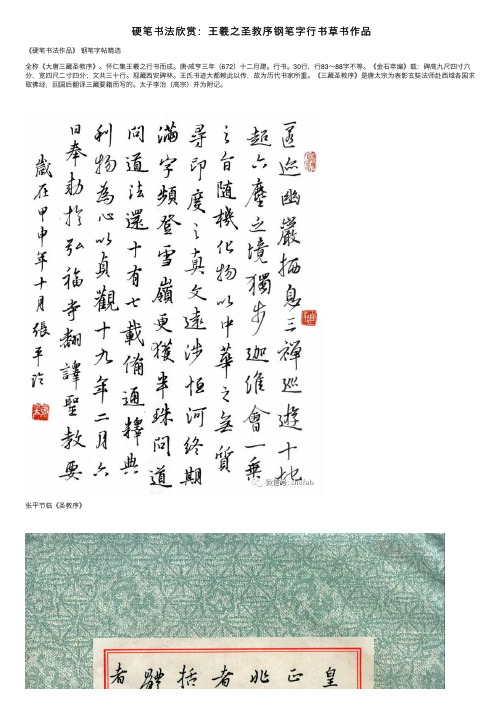 硬笔书法欣赏：王羲之圣教序钢笔字行书草书作品
《硬笔书法作品》 钢笔字帖精选
全称《大唐三藏圣教序》。怀仁集王羲之行书而成。唐·咸亨三年（672）十二月建。行书。30行，行83～88字不等。《金石萃编》载：碑高九尺四寸六
分，宽四尺二寸四分；文共三十行。现藏西安碑林。王氏书迹大都赖此以传，故为历代书家所重。《三藏圣教序》是唐太宗为表彰玄奘法师赴西域各国求
取佛经，回国后翻译三藏要籍而写的。太子李治（高宗）并为附记。
匿迹幽巖栖息三禪巡遊十地
超六塵之境獨步迦維會一乗
之旨随機化物以中華之無質
尋印度之真文遠涉恒河終期
滿字頻登雪嶺更獲半珠問道
問道法還十有七載備通釋典
利物為心以貞觀十九年二月六
日奉勅於弘福寺翻譯聖教要
歲在甲申年十月張平臨
微信号: shufab
张平节临《圣教序》
皇
正
兆
者
括
體
者